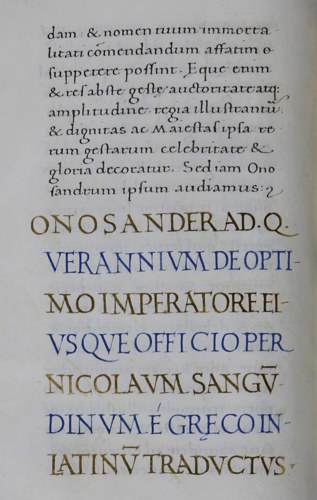 dam: & nomen tuum immorta
litati cōmendandum affatim e
suppetere possint. Eque enim
& res abs te geste auctoritate atq;
amplitudine regia illustrantur̄
& dignitas ac Maiestas ipsa re
rum gestarum celebritate &
gloria decoratur. Sed iam Ono
sandrum ipsum audiamus:
ONOSANDER AD. Q.
VERANNIVM DE OPTI-
MO IMPERATORE EI-
VSQVE OFFICIO PER
NICOLAVM SANGV̄-
DINVM É GRĘCO IN
LATINV̄ TRADVCTVS.